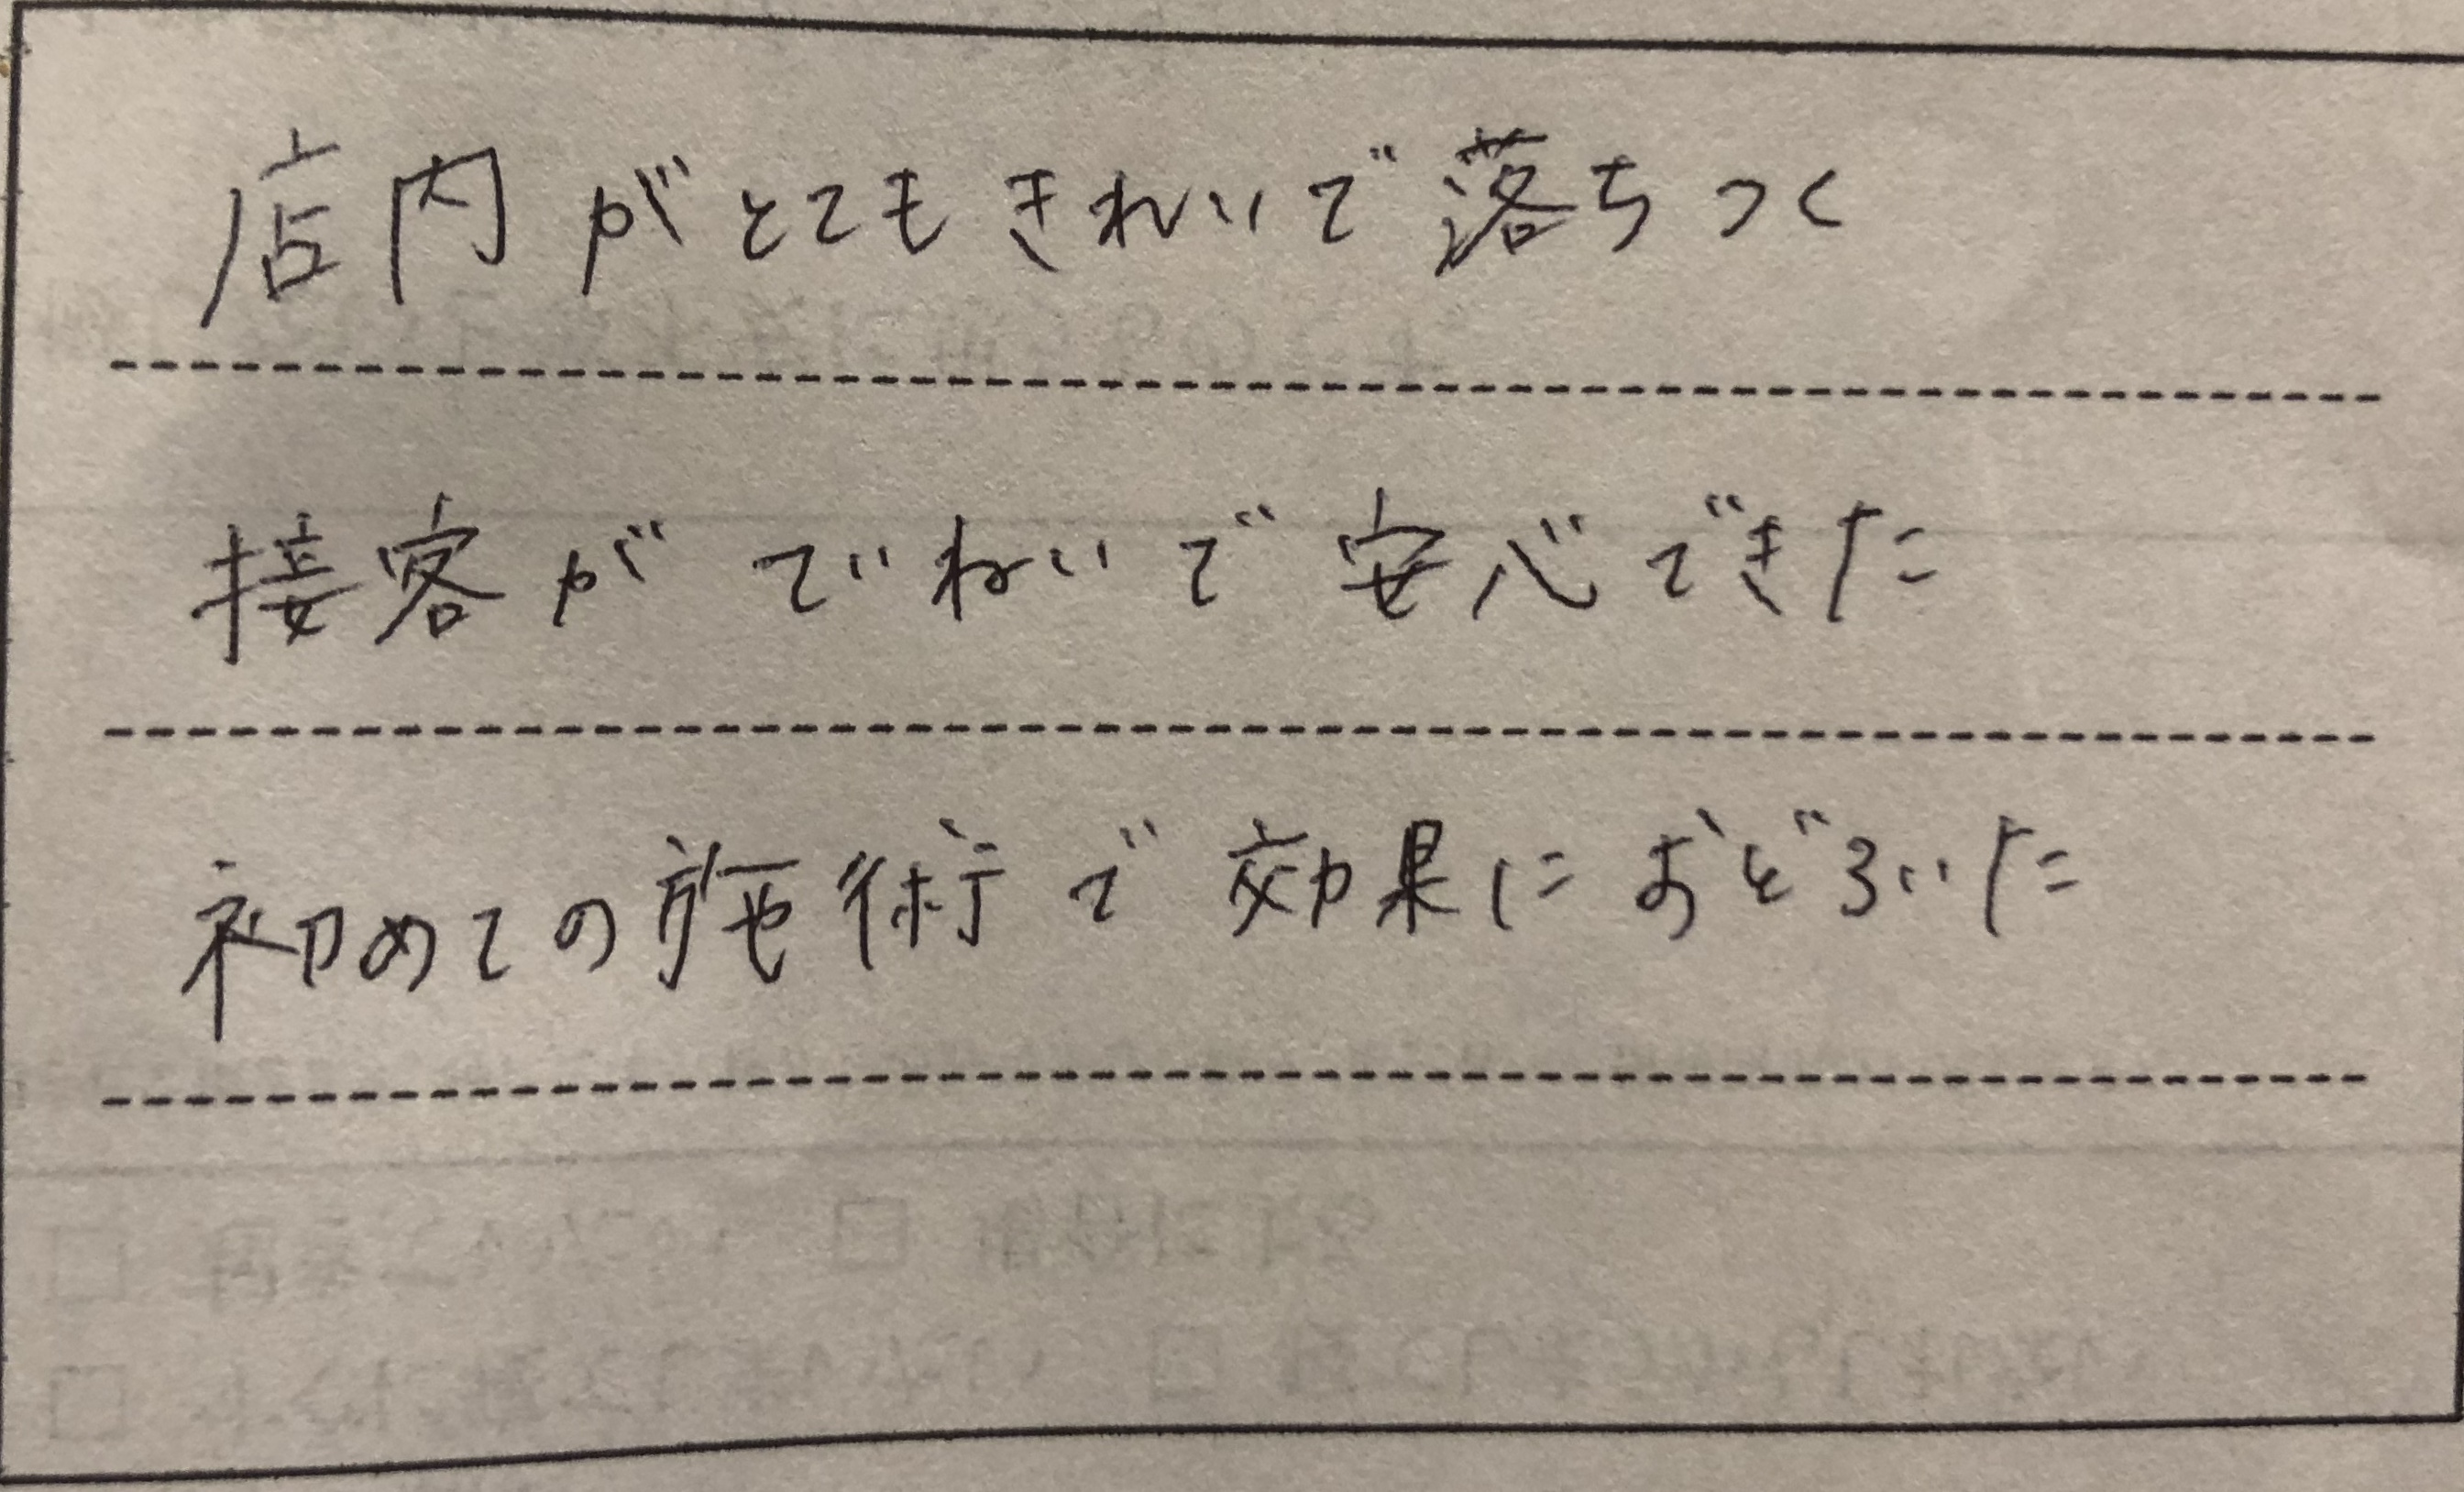 店内がとてもきれいで落ちつく
接客がていねいで安心できた
初めての施術で効果におどろいた